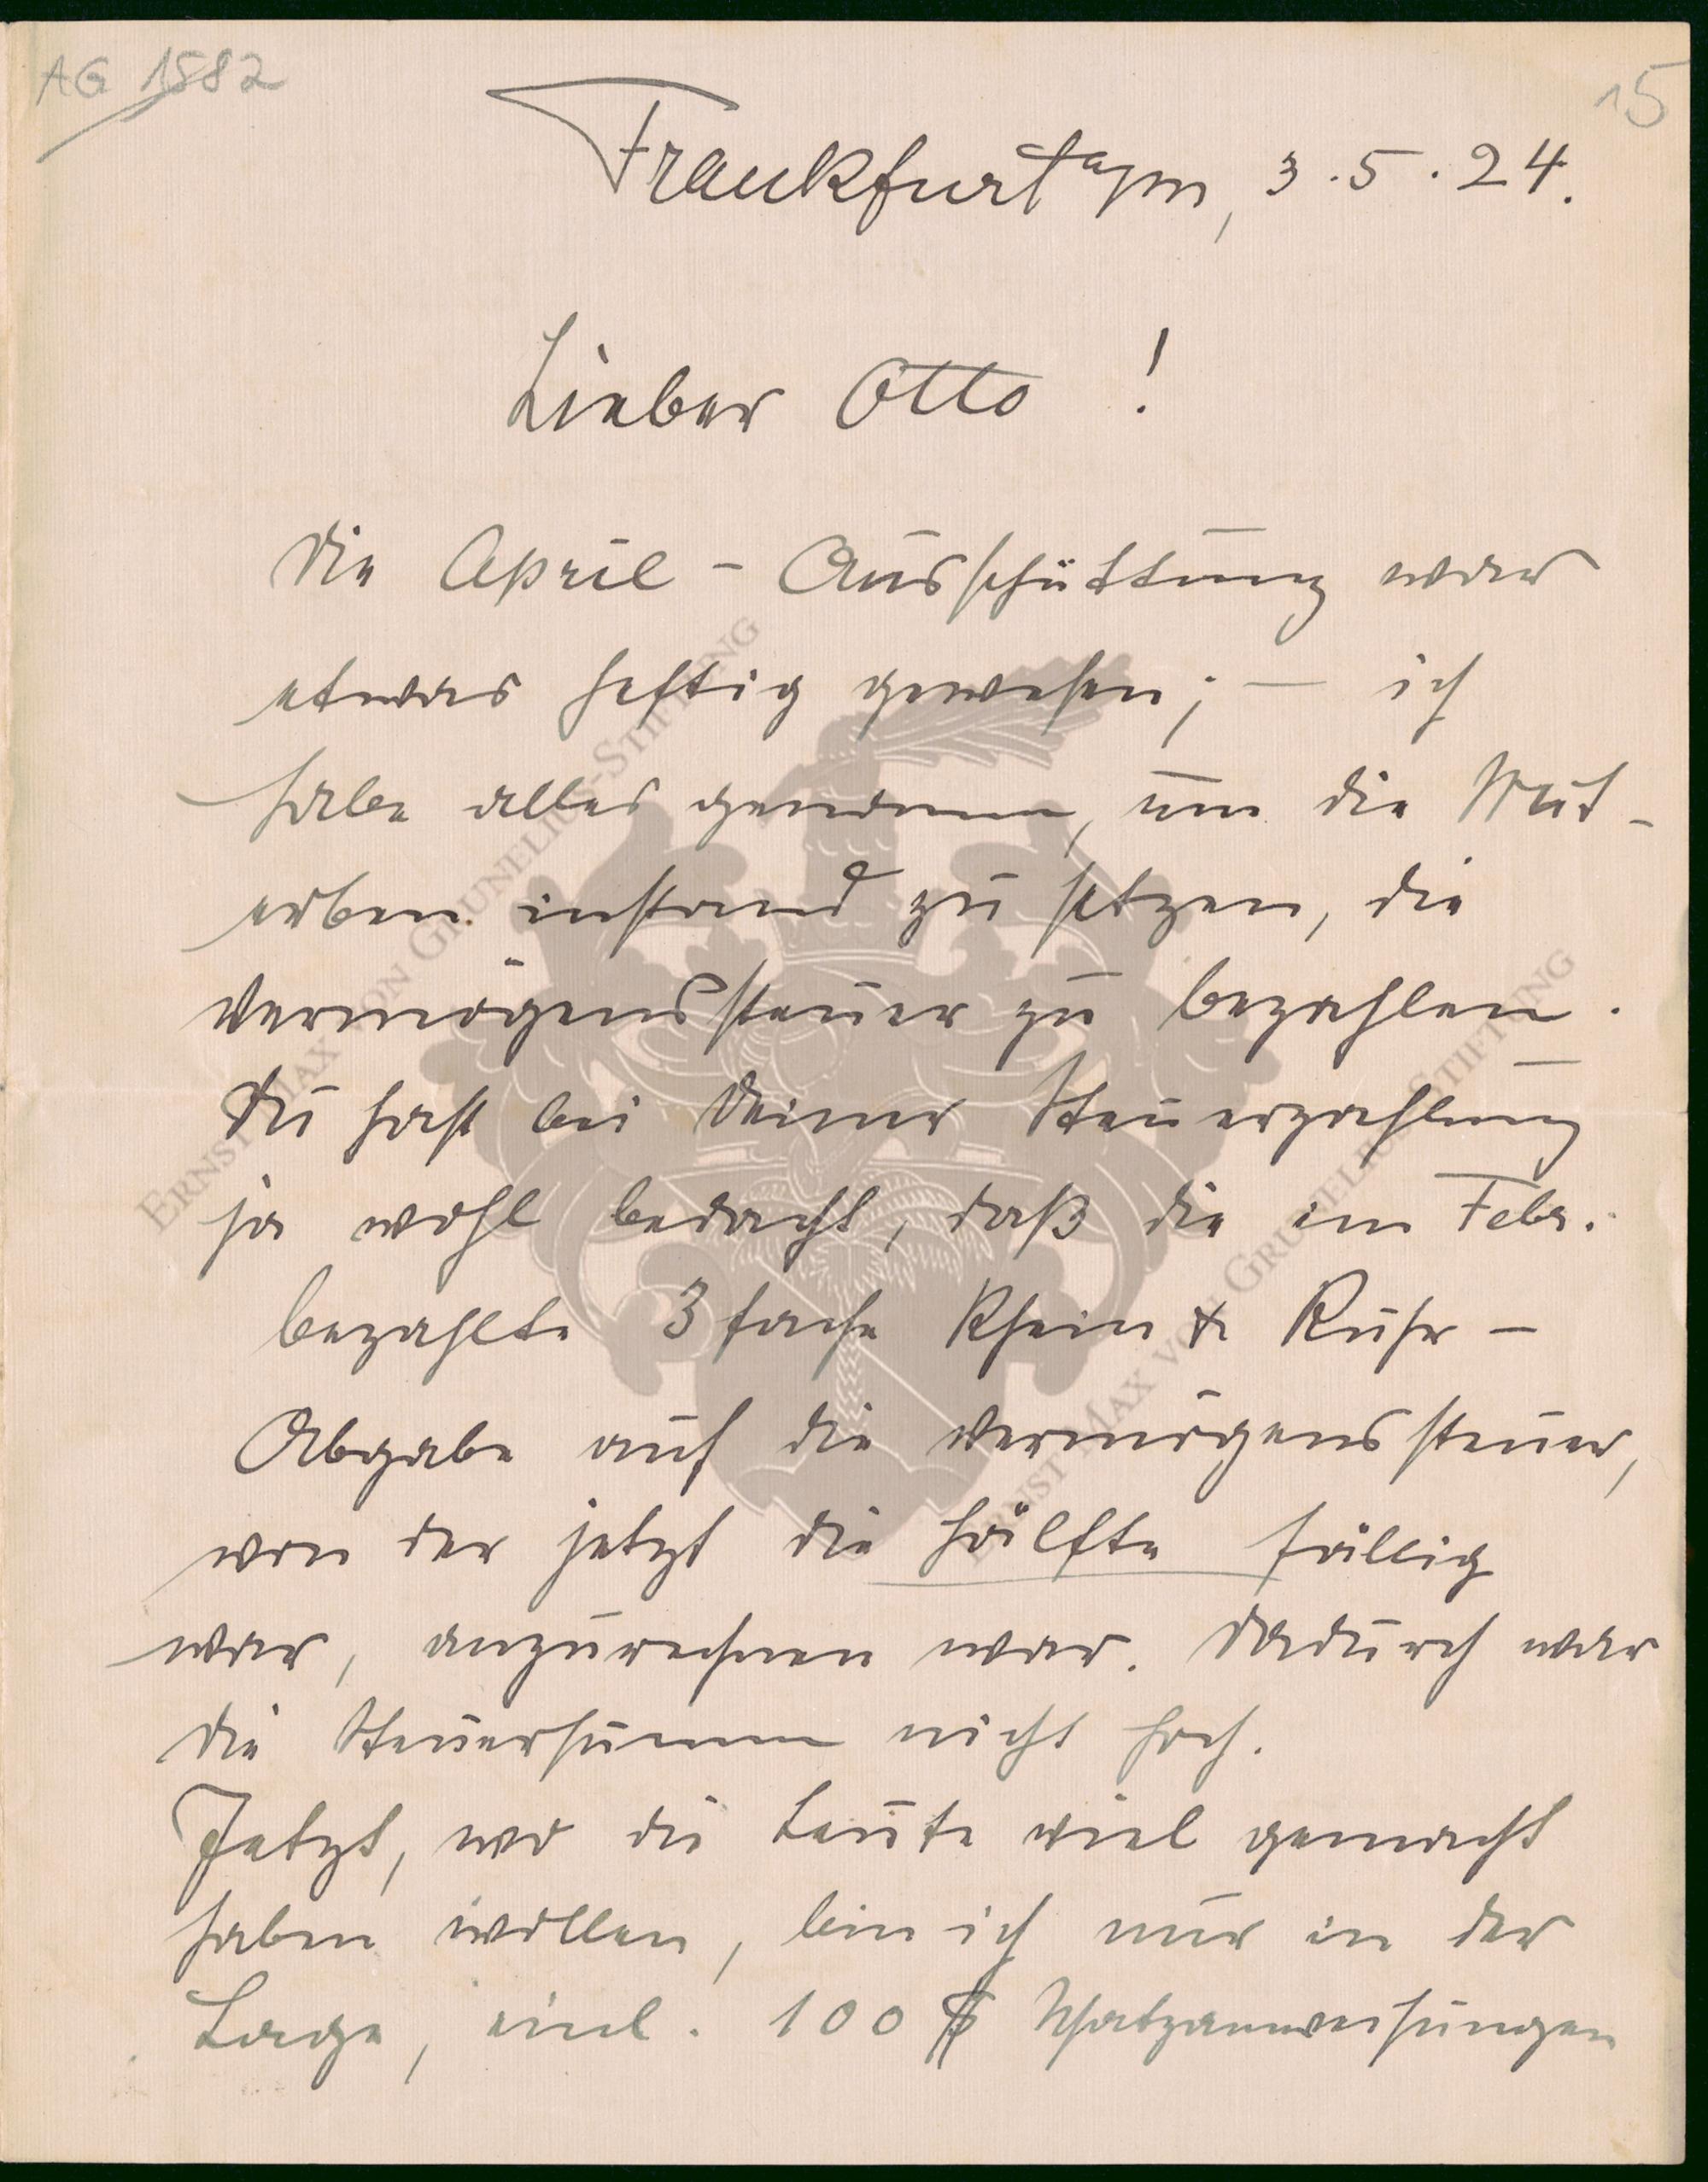 AG 1582
15
Frankfurt a/m, 3.5.24.
Lieber Otto!
Die April-Ausschüttung war
etwas heftig gewesen; — ich
habe alles genommen, um die Mit-
erben instand zu setzen, die
Vermögenssteuer zu bezahlen.
Du hast bei Deiner Steuerzahlung
ja wohl bedacht, daß die im Febr.
bezahlte 3fache Rhein & Ruhr-
Abgabe auf die Vermögenssteuer,
von der jetzt die Hälfte fällig
war, anzurechnen war. Dadurch war
die Steuersumme nicht hoch.
Jetzt, wo die Leute viel gemacht
haben wollen, bin ich nur in der
Lage, incl. 100 $ Schatzanweisungen
ERNST MAX VON GRUNELIUS-STIFTUNG
ERNST MAX VON GRUNELIUS-STIFTUNG